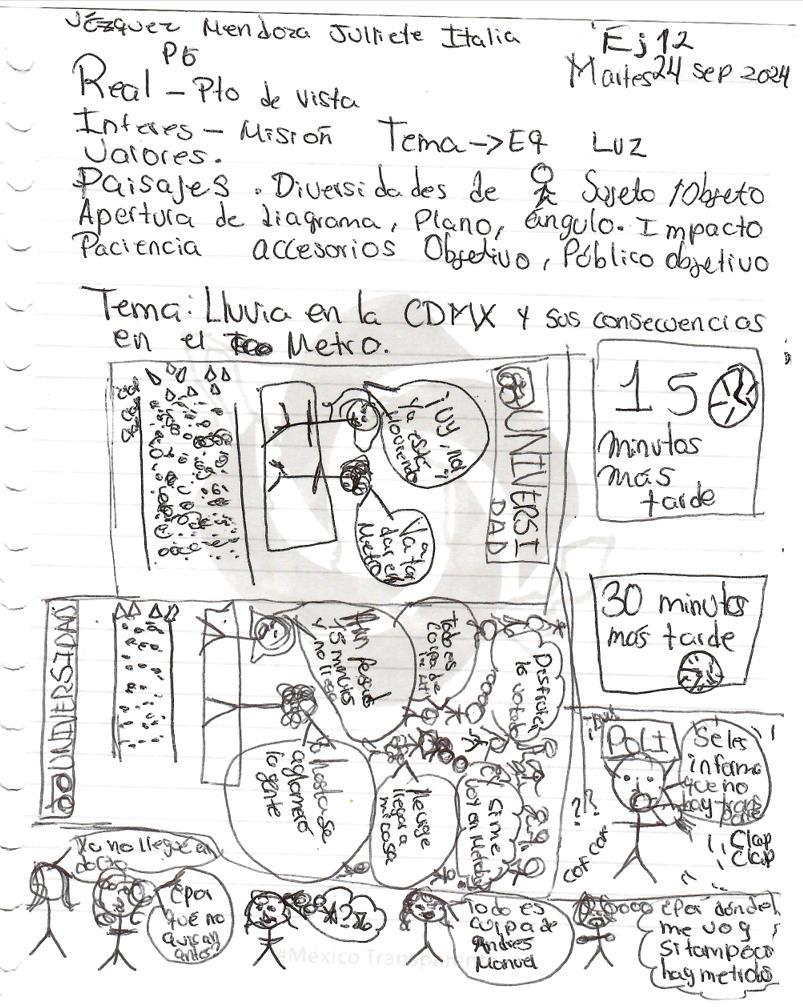 Vézquez Mendoza Julliete Italia
Ej 12
P6
Martes 24 sep 2024
Real – Pto de vista
Interes – Misión Tema -> Eq Luz
Valores.
Paisajes . Diversidades de Sujeto / Objeto
Apertura de diagrama, Plano, ángulo. Impacto
Paciencia accesorios Objetivo, Público objetivo
Tema: Lluvia en la CDMX y sus consecuencias
en el Metro.
UNIVERSI
DAD
¡Uy, no!
ya está
lloviendo
Va a
tardar el
Metro
15
minutos
más
tarde
30 minutos
más tarde
UNIVERSIDAD
Han pasado
15 minutos
y no llega
Todo es
culpa de
Disfruten
lo votado
hasta se
aglomeró
la gente
Me urge
llegar a
mi casa
si me
voy en Metrobús
POLI
Se les
informa
que no
hay transporte
??
cof cof
Clap
Clap
Ya no llegué a
¿Por
qué no
avisan
antes?
Todo es
culpa de
Andrés
Manuel
¿Por dónde
me voy
si tampoco
hay metrobús
#México Transparente